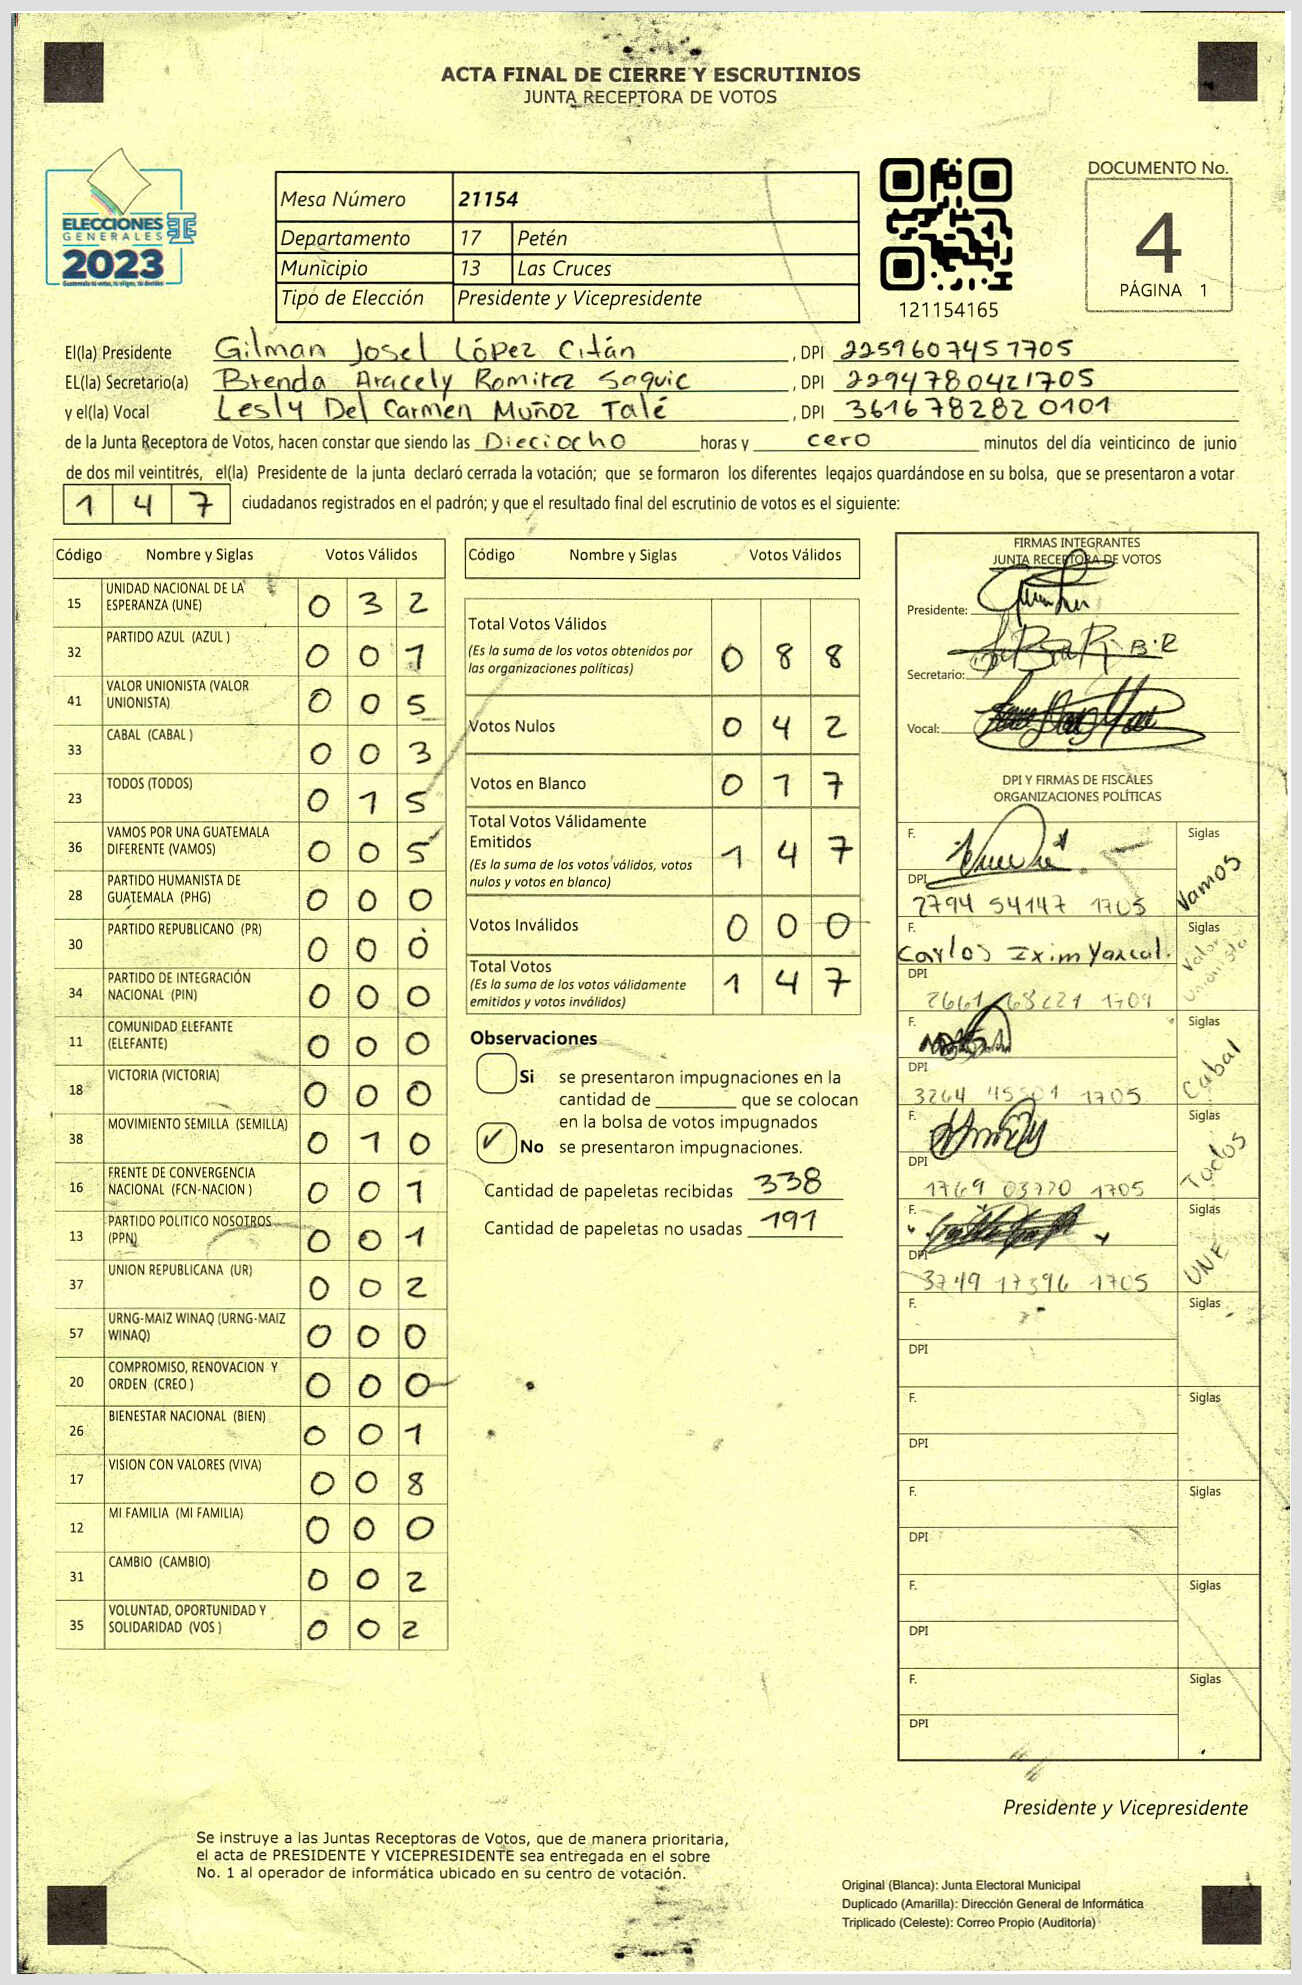 ACTA FINAL DE CIERRE Y ESCRUTINIOS
JUNTA RECEPTORA DE VOTOS
ELECCIONES
GENERALES
2023
Mesa Número 21154
Departamento 17 Petén
Municipio 13 Las Cruces
Tipo de Elección Presidente y Vicepresidente
121154165
DOCUMENTO No.
4
PÁGINA 1
El(la) Presidente Gilman Josel López Citán , DPI 2259607451705
EL(la) Secretario(a) Brenda Aracely Ramirez Saquic , DPI 2294780421705
y el(la) Vocal Lesly Del Carmen Muñoz Talé , DPI 3616782820101
de la Junta Receptora de Votos, hacen constar que siendo las Dieciocho horas y cero minutos del día veinticinco de junio
de dos mil veintitrés, el(la) Presidente de la junta declaró cerrada la votación; que se formaron los diferentes legajos quardándose en su bolsa, que se presentaron a votar
1 4 7 ciudadanos registrados en el padrón; y que el resultado final del escrutinio de votos es el siguiente:
Código Nombre y Siglas Votos Válidos
15 UNIDAD NACIONAL DE LA ESPERANZA (UNE) 0 3 2
32 PARTIDO AZUL (AZUL ) 0 0 1
41 VALOR UNIONISTA (VALOR UNIONISTA) 0 0 5
33 CABAL (CABAL ) 0 0 3
23 TODOS (TODOS) 0 1 5
36 VAMOS POR UNA GUATEMALA DIFERENTE (VAMOS) 0 0 5
28 PARTIDO HUMANISTA DE GUATEMALA (PHG) 0 0 0
30 PARTIDO REPUBLICANO (PR) 0 0 0
34 PARTIDO DE INTEGRACIÓN NACIONAL (PIN) 0 0 0
11 COMUNIDAD ELEFANTE (ELEFANTE) 0 0 0
18 VICTORIA (VICTORIA) 0 0 0
38 MOVIMIENTO SEMILLA (SEMILLA) 0 1 0
16 FRENTE DE CONVERGENCIA NACIONAL (FCN-NACION ) 0 0 1
13 PARTIDO POLITICO NOSOTROS (PPN) 0 0 1
37 UNION REPUBLICANA (UR) 0 0 2
57 URNG-MAIZ WINAQ (URNG-MAIZ WINAQ) 0 0 0
20 COMPROMISO, RENOVACION Y ORDEN (CREO ) 0 0 0
26 BIENESTAR NACIONAL (BIEN) 0 0 1
17 VISION CON VALORES (VIVA) 0 0 8
12 MI FAMILIA (MI FAMILIA) 0 0 0
31 CAMBIO (CAMBIO) 0 0 2
35 VOLUNTAD, OPORTUNIDAD Y SOLIDARIDAD (VOS ) 0 0 2
Código Nombre y Siglas Votos Válidos
Total Votos Válidos 0 8 8
(Es la suma de los votos obtenidos por
las organizaciones políticas)
Votos Nulos 0 4 2
Votos en Blanco 0 1 7
Total Votos Válidamente
Emitidos 1 4 7
(Es la suma de los votos válidos, votos
nulos y votos en blanco)
Votos Inválidos 0 0 0
Total Votos 1 4 7
(Es la suma de los votos válidamente
emitidos y votos inválidos)
Observaciones
Si se presentaron impugnaciones en la
cantidad de ________ que se colocan
en la bolsa de votos impugnados
No se presentaron impugnaciones.
Cantidad de papeletas recibidas 338
Cantidad de papeletas no usadas 191
FIRMAS INTEGRANTES
JUNTA RECEPTORA DE VOTOS
Presidente:
Secretario:
Vocal:
DPI Y FIRMAS DE FISCALES
ORGANIZACIONES POLÍTICAS
F. Siglas Vamos
DPI 2794 54147 1705
F. Carlos Ixim Yaxcal. Siglas Valor Unionista
DPI
F. Siglas Cabal
DPI 1705
F. Siglas Todos
DPI 1769 03720 1705
F. Siglas UNE
DPI 3749 17396 1705
F. Siglas
DPI
F. Siglas
DPI
F. Siglas
DPI
F. Siglas
DPI
F. Siglas
DPI
Presidente y Vicepresidente
Se instruye a las Juntas Receptoras de Votos, que de manera prioritaria,
el acta de PRESIDENTE Y VICEPRESIDENTE sea entregada en el sobre
No. 1 al operador de informática ubicado en su centro de votación.
Original (Blanca): Junta Electoral Municipal
Duplicado (Amarilla): Dirección General de Informática
Triplicado (Celeste): Correo Propio (Auditoría)